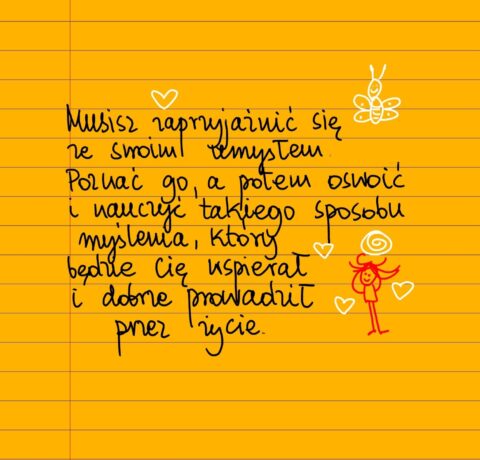 Musisz zaprzyjaźnić się
ze swoim umysłem.
Poznać go, a potem oswoić
i nauczyć takiego sposobu
myślenia, który
będzie Cię wspierał
i dobrze prowadził
przez życie.